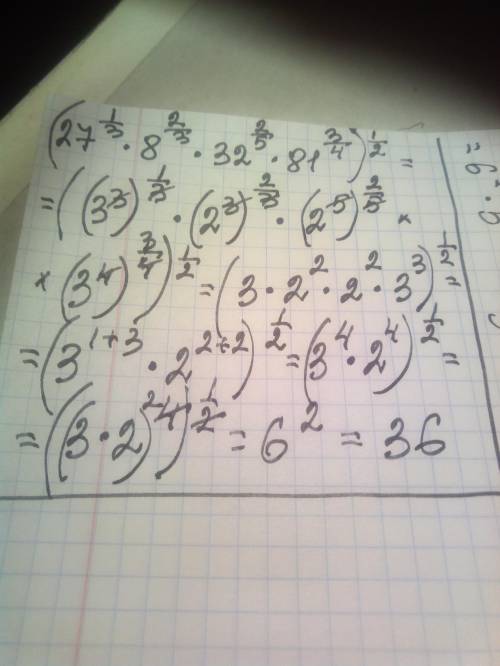 (27^{1/3} · 8^{2/3} · 32^{2/5} · 81^{3/4})^{1/2} =
= ((3^3)^{1/3} · (2^3)^{2/3} · (2^5)^{2/5} ×
× (3^4)^{3/4})^{1/2} = (3 · 2^2 · 2^2 · 3^3)^{1/2} =
= (3^{1+3} · 2^{2+2})^{1/2} = (3^4 · 2^4)^{1/2} =
= ((3 · 2)^4)^{1/2} = 6^2 = 36